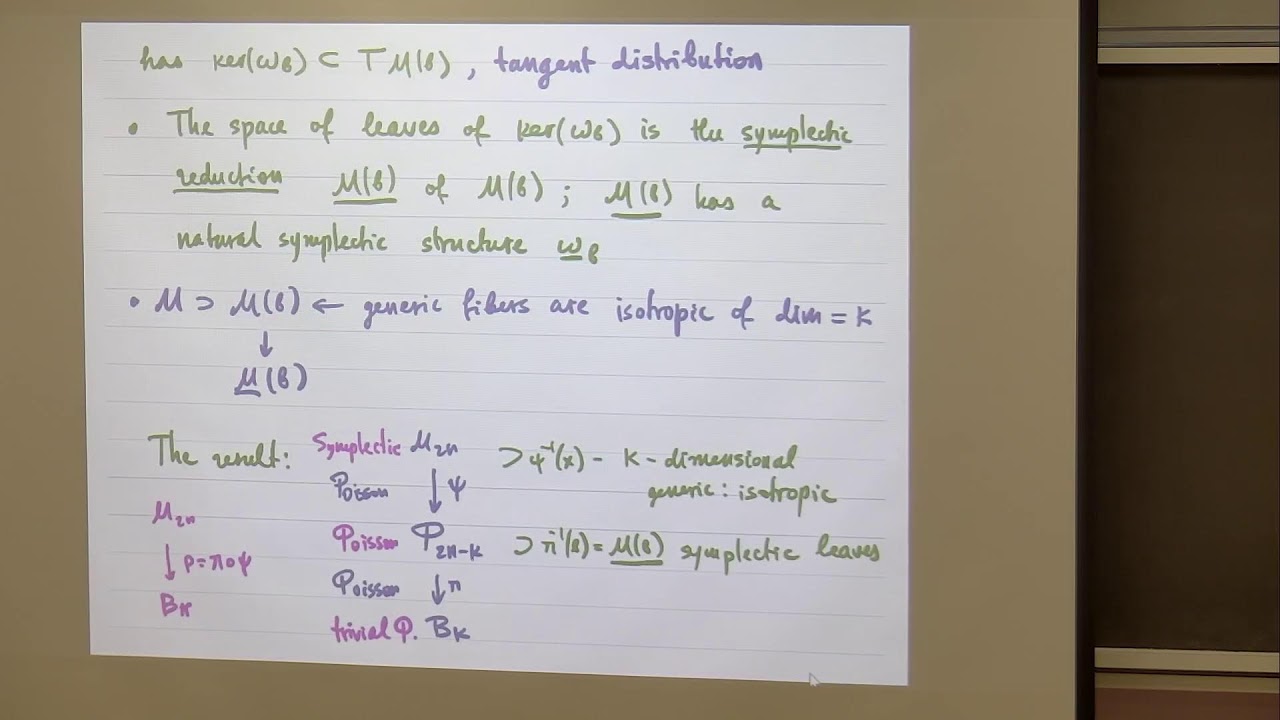 has ker(ω_B) ⊂ TM(B), tangent distribution
• The space of leaves of ker(ω_B) is the symplectic
reduction M(B) of M(B); M(B) has a
natural symplectic structure ω_B
• M ⊃ M(B) ← generic fibers are isotropic of dim = k
↓
M(B)
The result: Symplectic M_2n ⊃ ψ⁻¹(x) - k-dimensional
Poisson ↓ ψ generic: isotropic
M_2n
Poisson P_2n-k ⊃ π⁻¹(B) = M(B) symplectic leaves
↓ p=π∘ψ
Poisson ↓ π
B_k
trivial P. B_k